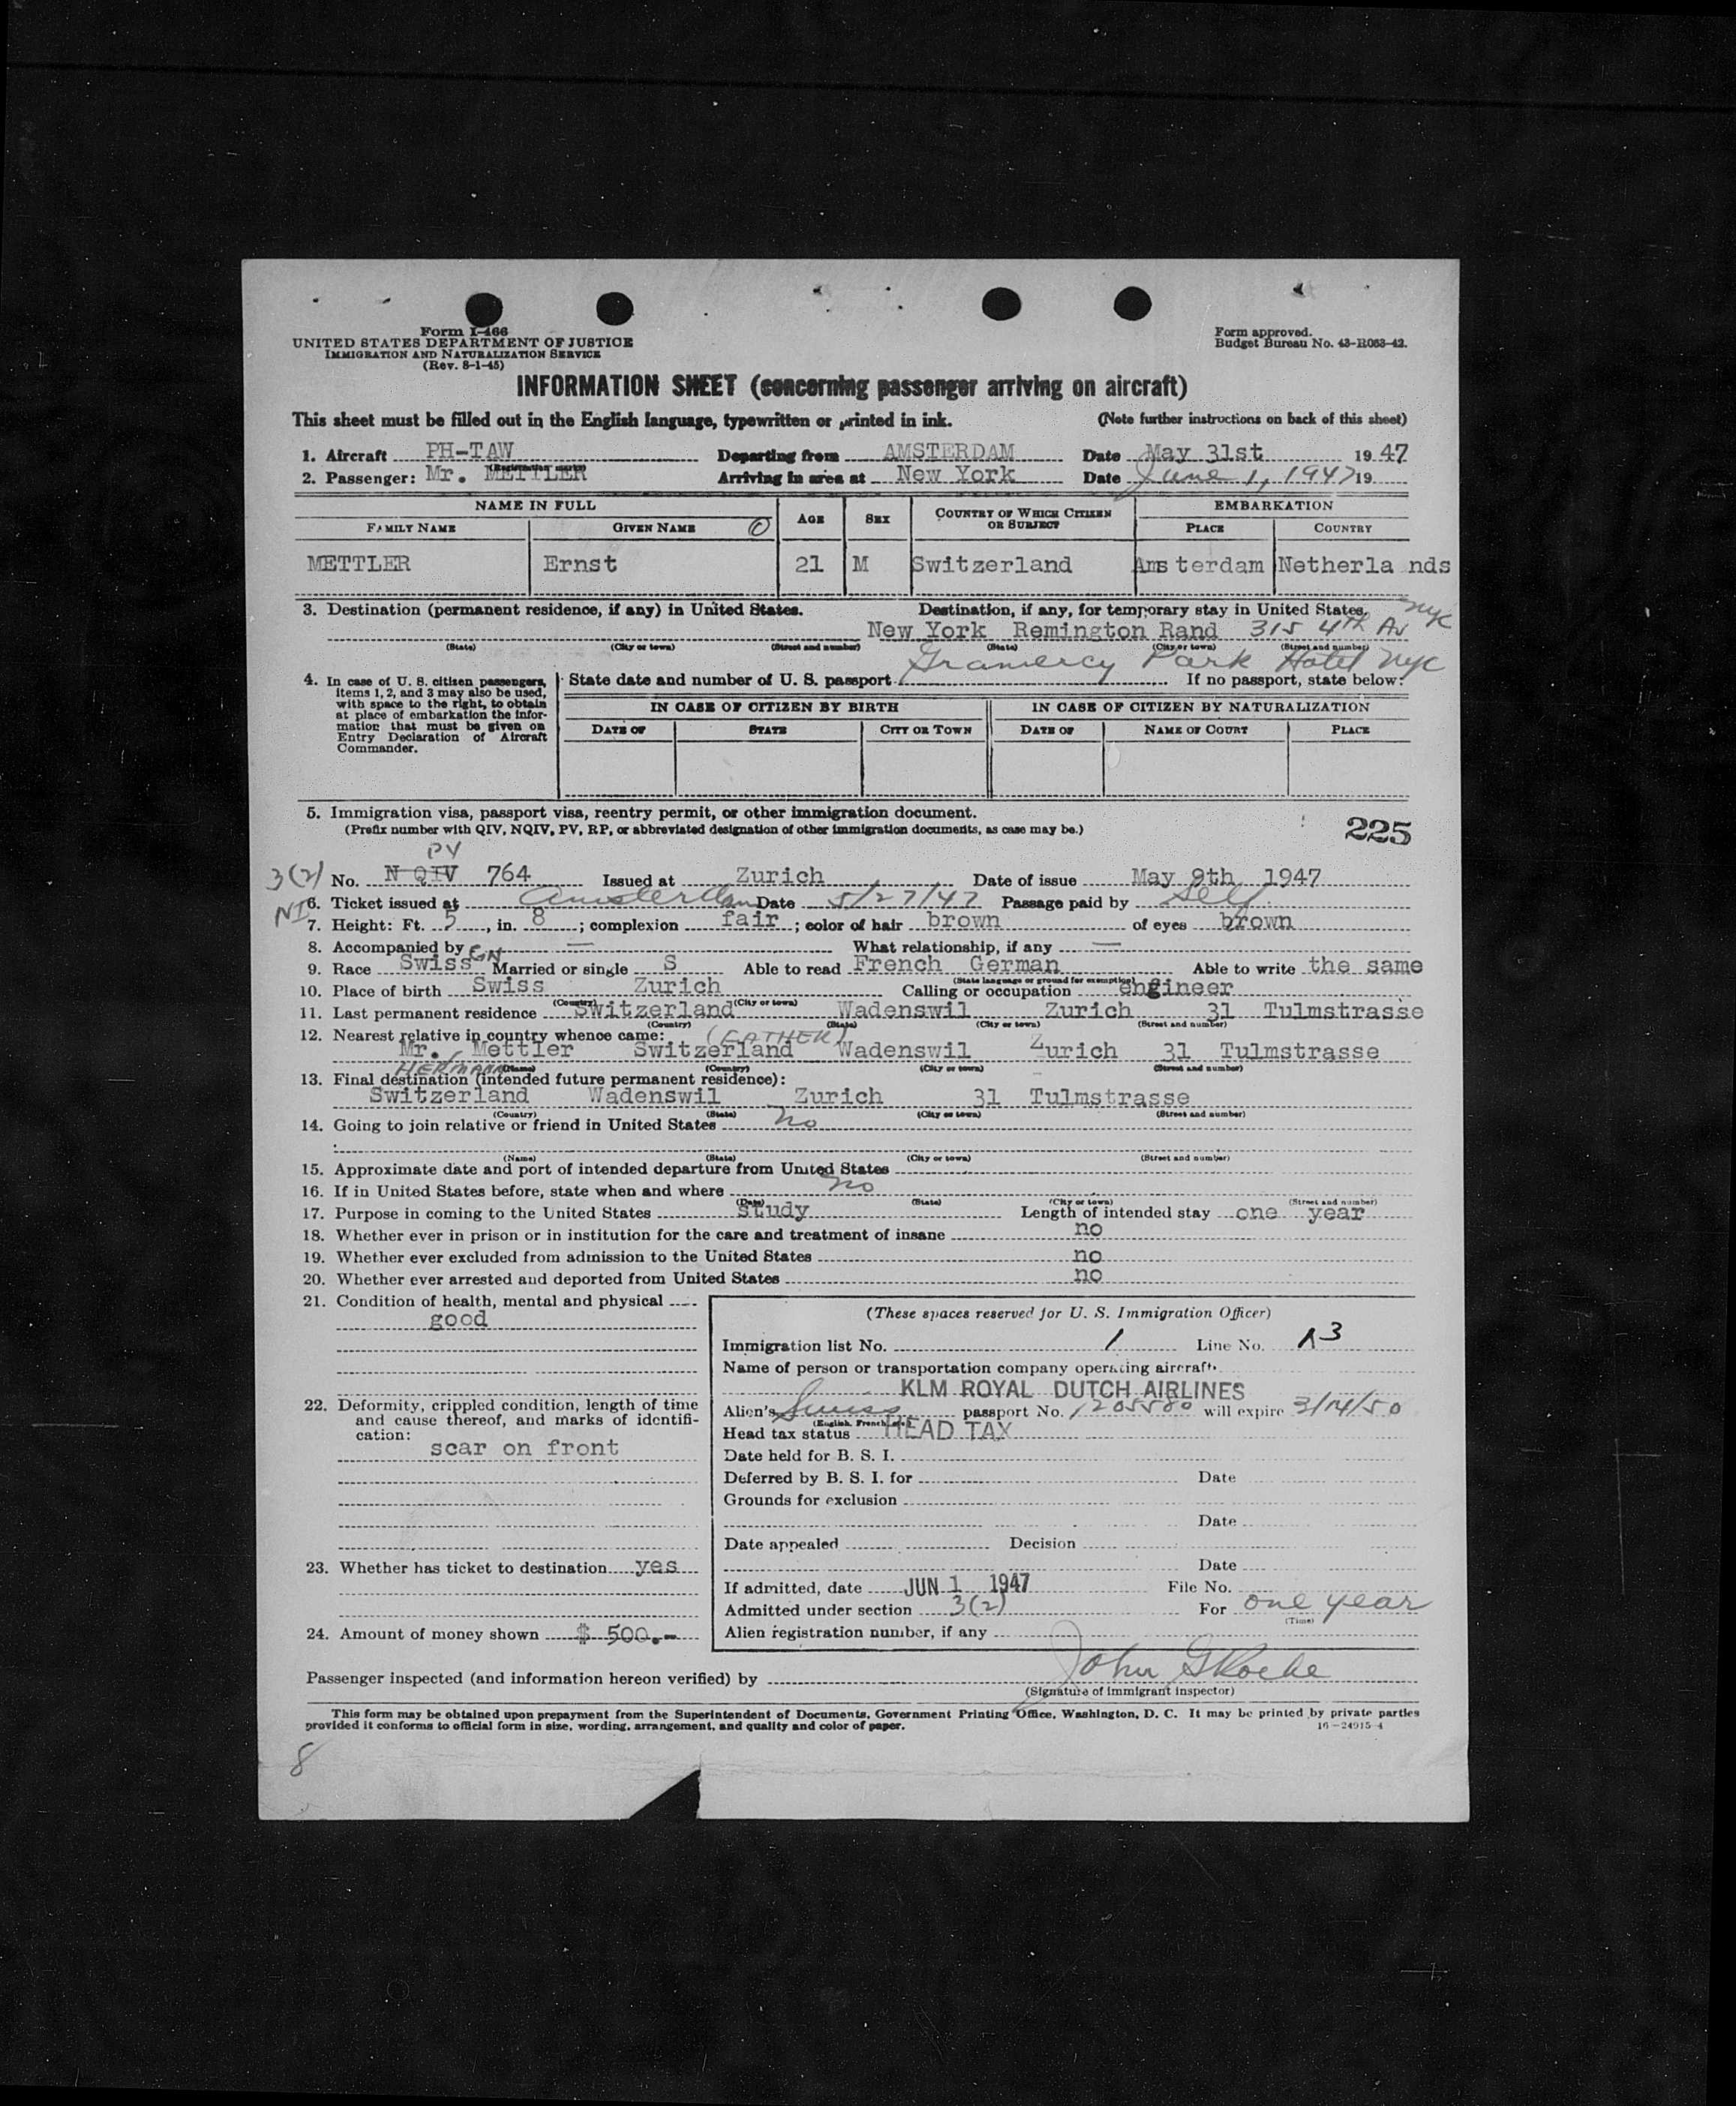 Form I-466
UNITED STATES DEPARTMENT OF JUSTICE
IMMIGRATION AND NATURALIZATION SERVICE
(Rev. 8-1-45)
Form approved.
Budget Bureau No. 43-R063-42.
INFORMATION SHEET (concerning passenger arriving on aircraft)
This sheet must be filled out in the English language, typewritten or printed in ink. (Note further instructions on back of this sheet)
1. Aircraft PH-TAW Departing from AMSTERDAM Date May 31st 1947
(Registration marks)
2. Passenger: Mr. METTLER Arriving in area at New York Date June 1, 1947 19
NAME IN FULL AGE SEX COUNTRY OF WHICH CITIZEN OR SUBJECT EMBARKATION
FAMILY NAME GIVEN NAME PLACE COUNTRY
METTLER Ernst 21 M Switzerland Amsterdam Netherla nds
3. Destination (permanent residence, if any) in United States. Destination, if any, for temporary stay in United States. NYC
New York Remington Rand 315 4th Av
(State) (City or town) (Street and number) (State) (City or town) (Street and number)
Gramercy Park Hotel NYC
4. In case of U. S. citizen passengers, items 1, 2, and 3 may also be used, with space to the right, to obtain at place of embarkation the information that must be given on Entry Declaration of Aircraft Commander.
State date and number of U. S. passport If no passport, state below:
IN CASE OF CITIZEN BY BIRTH IN CASE OF CITIZEN BY NATURALIZATION
DATE OF STATE CITY OR TOWN DATE OF NAME OF COURT PLACE
5. Immigration visa, passport visa, reentry permit, or other immigration document.
(Prefix number with QIV, NQIV, PV, RP, or abbreviated designation of other immigration documents, as case may be.)
225
PV
3(2) No. N QIV 764 Issued at Zurich Date of issue May 9th 1947
NI 6. Ticket issued at Amsterdam Date 5/27/47 Passage paid by Self
7. Height: Ft. 5, in. 8; complexion fair; color of hair brown of eyes brown
8. Accompanied by — What relationship, if any —
9. Race Swiss GN Married or single S Able to read French German Able to write the same
(State language or ground for exemption)
10. Place of birth Swiss Zurich Calling or occupation engineer
(Country) (City or town)
11. Last permanent residence Switzerland Wadenswil Zurich 31 Tulmstrasse
(Country) (State) (City or town) (Street and number)
12. Nearest relative in country whence came: (FATHER)
Mr. Mettler Switzerland Wadenswil Zurich 31 Tulmstrasse
HERMANN (Name) (Country) (City or town) (Street and number)
13. Final destination (intended future permanent residence):
Switzerland Wadenswil Zurich 31 Tulmstrasse
(Country) (State) (City or town) (Street and number)
14. Going to join relative or friend in United States no
(Name) (State) (City or town) (Street and number)
15. Approximate date and port of intended departure from United States
16. If in United States before, state when and where no
(Date) (State) (City or town) (Street and number)
17. Purpose in coming to the United States study Length of intended stay one year
18. Whether ever in prison or in institution for the care and treatment of insane no
19. Whether ever excluded from admission to the United States no
20. Whether ever arrested and deported from United States no
21. Condition of health, mental and physical
good
22. Deformity, crippled condition, length of time and cause thereof, and marks of identification:
scar on front
23. Whether has ticket to destination yes
24. Amount of money shown $ 500.-
(These spaces reserved for U. S. Immigration Officer)
Immigration list No. 1 Line No. 13
Name of person or transportation company operating aircraft
KLM ROYAL DUTCH AIRLINES
Alien's Swiss passport No. 1205580 will expire 3/14/50
(English, French, etc.)
Head tax status HEAD TAX
Date held for B. S. I.
Deferred by B. S. I. for Date
Grounds for exclusion
Date
Date appealed Decision
Date
If admitted, date JUN 1 1947 File No.
Admitted under section 3(2) For one year
(Time)
Alien registration number, if any
Passenger inspected (and information hereon verified) by John G Roche
(Signature of immigrant inspector)
This form may be obtained upon prepayment from the Superintendent of Documents, Government Printing Office, Washington, D. C. It may be printed by private parties
provided it conforms to official form in size, wording, arrangement, and quality and color of paper.
16-24915-4
8